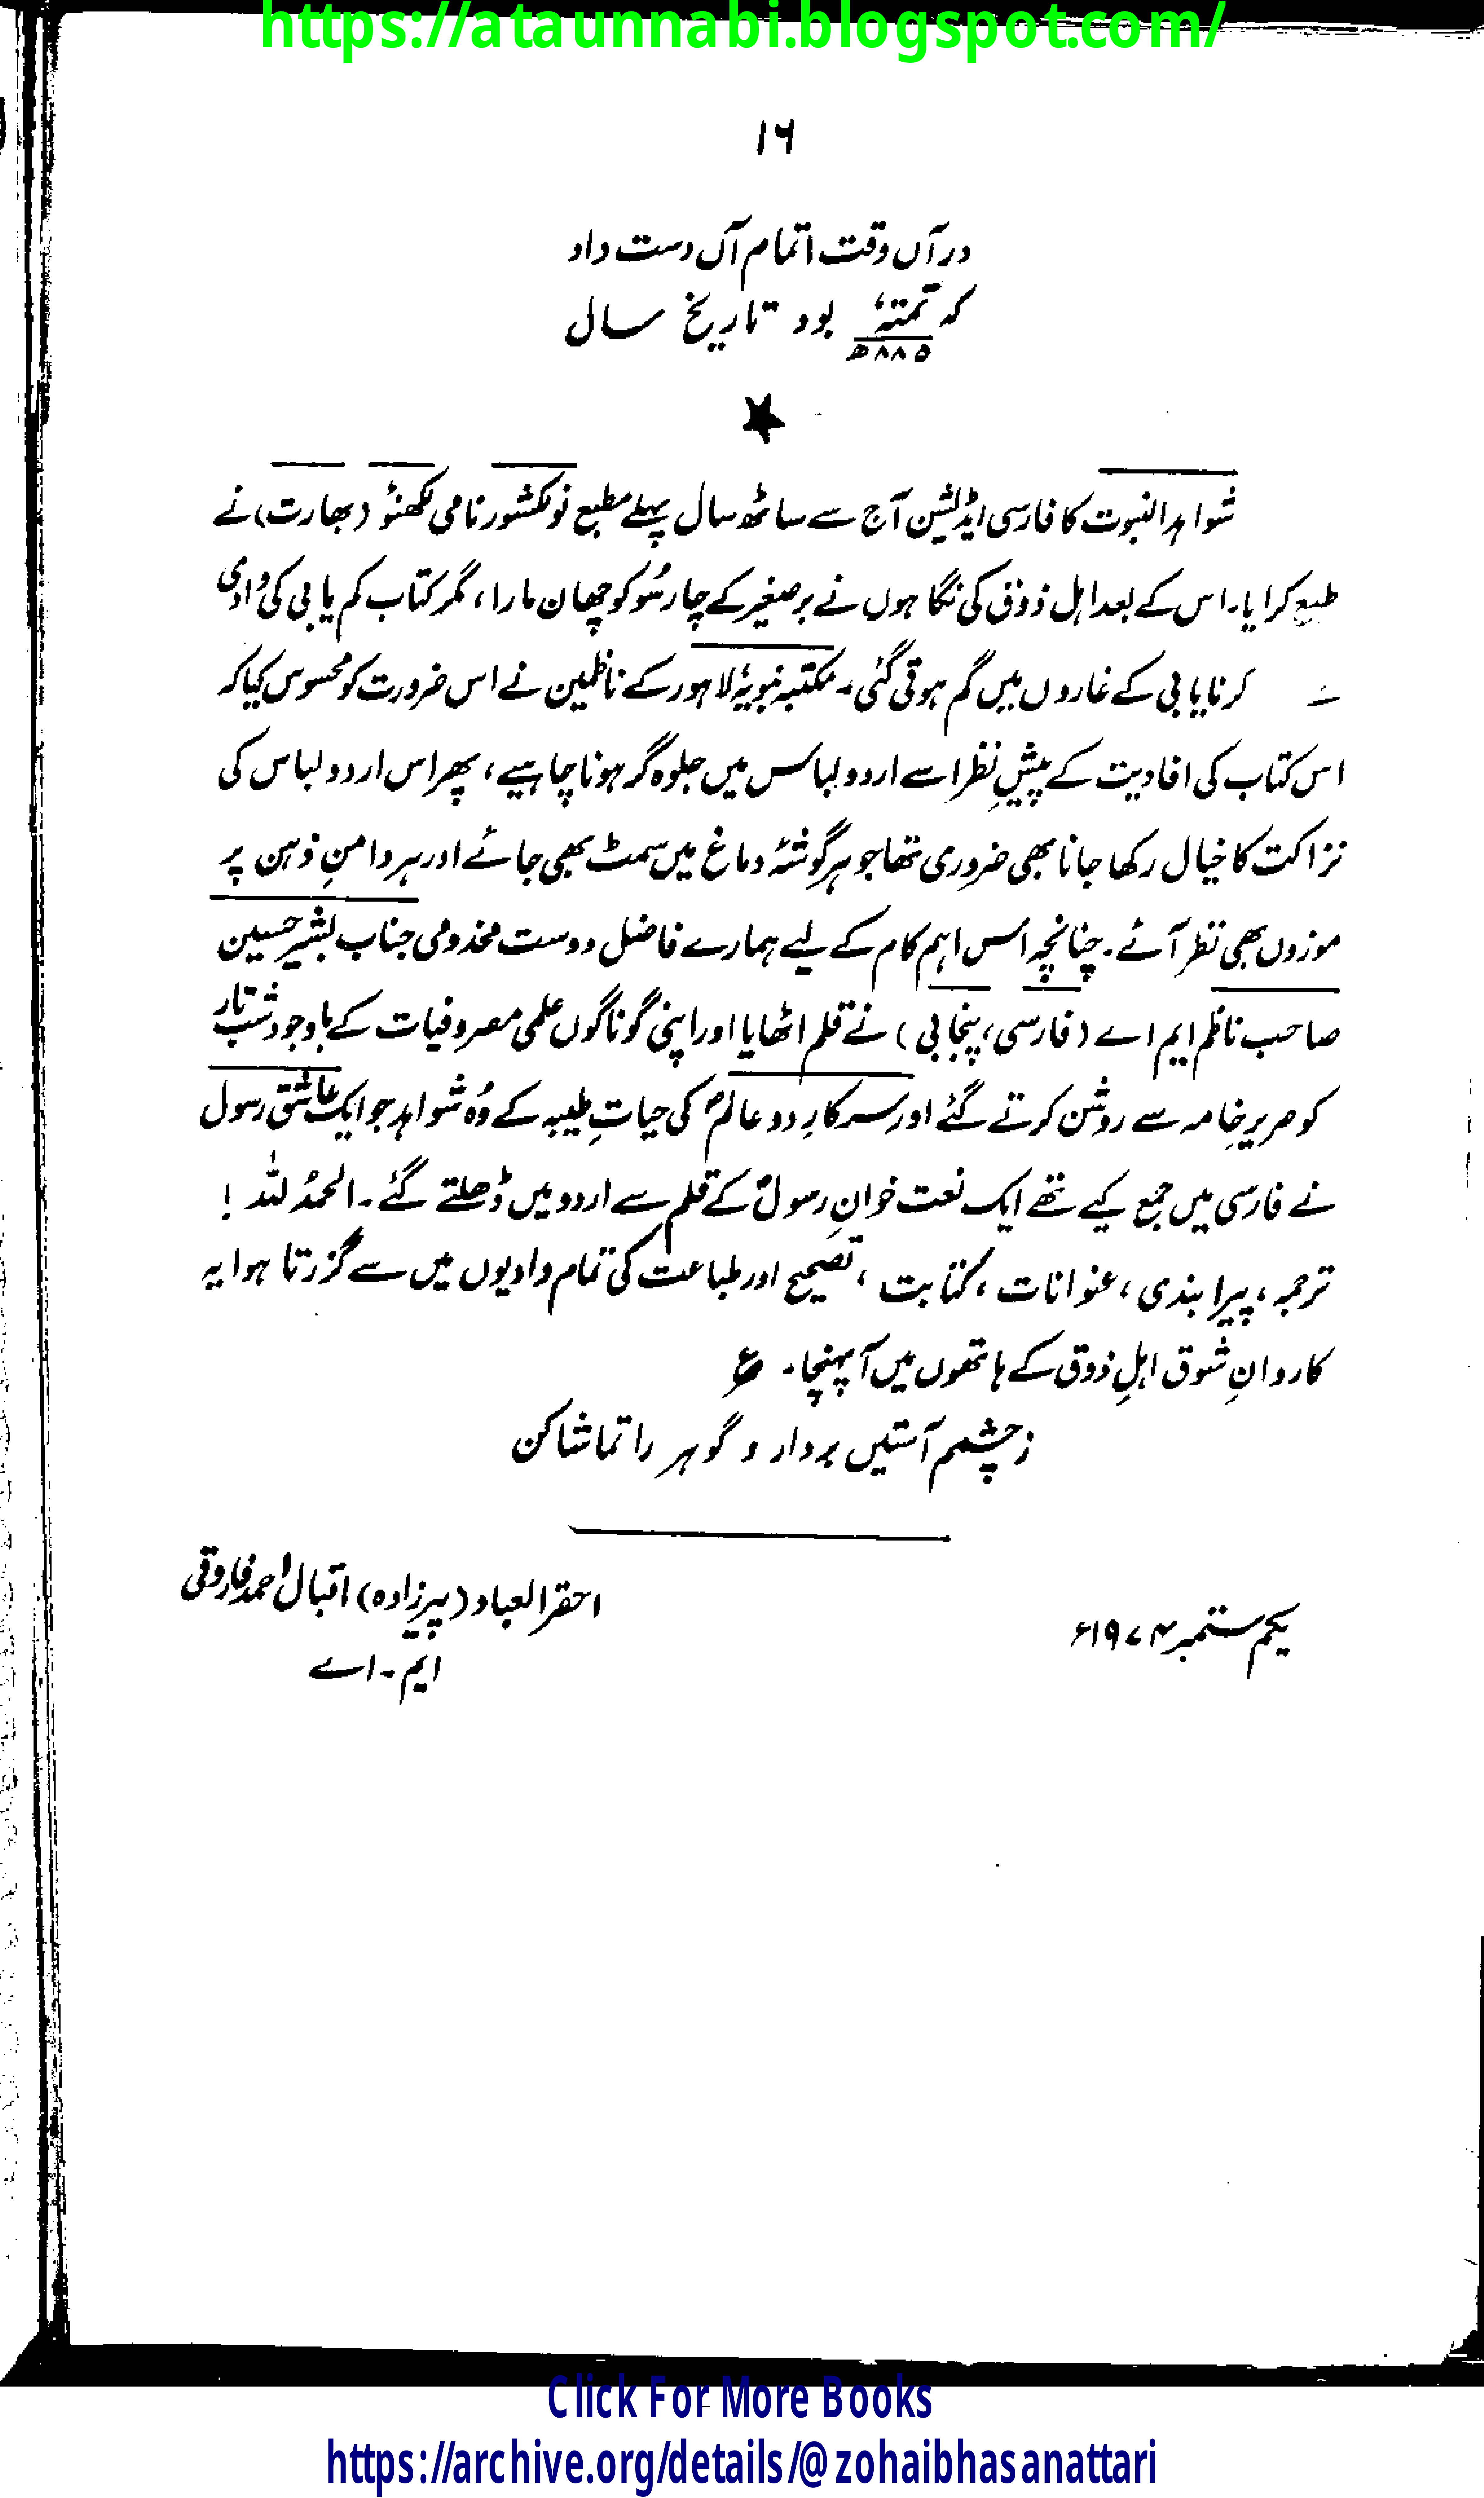 https://ataunnabi.blogspot.com/
١٦
در آں وقت اتمام آں دست داد
کہ تمتہٗ بود تاریخ سال
٨٨٥ھ
شواہد النبوت کا فارسی ایڈیشن آج سے ساٹھ سال پہلے مطبع نولکشور نامی لکھنؤ (بھارت) نے
طبع کرایا۔ اس کے بعد اہل ذوق کی نگاہوں نے برصغیر کے چار سُو کو چھان مارا، مگر کتاب کم یابی کی وادی
سے کر نایابی کے غاروں میں گم ہوتی گئی۔ مکتبہ نبویہ لاہور کے ناظمین نے اس ضرورت کو محسوس کیا کہ
اس کتاب کی افادیت کے پیشِ نظر اسے اردو لباس میں جلوہ گر ہونا چاہیے، پھر اس اردو لباس کی
نزاکت کا خیال رکھا جانا بھی ضروری تھا جو ہر گوشۂ دماغ میں سمٹ بھی جائے اور ہر دامنِ ذہن پر
موزوں بھی نظر آئے۔ چنانچہ اس اہم کام کے لیے ہمارے فاضل دوست مخدومی جناب بشیر حسین
صاحب ناظم ایم اے (فارسی، پنجابی) نے قلم اٹھایا اور اپنی گوناگوں علمی مصروفیات کے باوجود شب تار
کو صریرِ خامہ سے روشن کرتے گئے اور سرکارِ دو عالمؐ کی حیاتِ طیبہ کے وُہ شواہد جو ایک عاشق رسول
نے فارسی میں جمع کیے تھے ایک نعت خوانِ رسولؐ کے قلم سے اردو میں ڈھلتے گئے۔ الحمدُ للہ !
ترجمہ، پیرا بندی، عنوانات، کتابت، تصحیح اور طباعت کی تمام وادیوں میں سے گزرتا ہوا یہ
کاروانِ شوق اہلِ ذوق کے ہاتھوں میں آ پہنچا۔ ع
ز چشمم آستیں بردار و گوہر را تماشا کن
احقر العباد (پیرزادہ) اقبال احمد فاروقی
یکم ستمبر ۱۹۷۴ء
ایم۔اے
Click For More Books
https://archive.org/details/@zohaibhasanattari